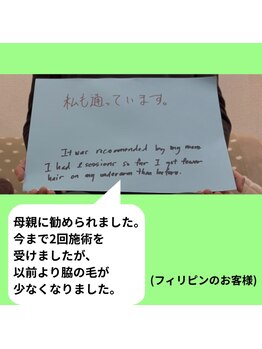 私も通っています。
It was recommended by my mom
I had 2 sessions so far I got fewer
hair on my underarm than before.
母親に勧められました。
今まで2回施術を
受けましたが、
以前より脇の毛が
少なくなりました。
(フィリピンのお客様)